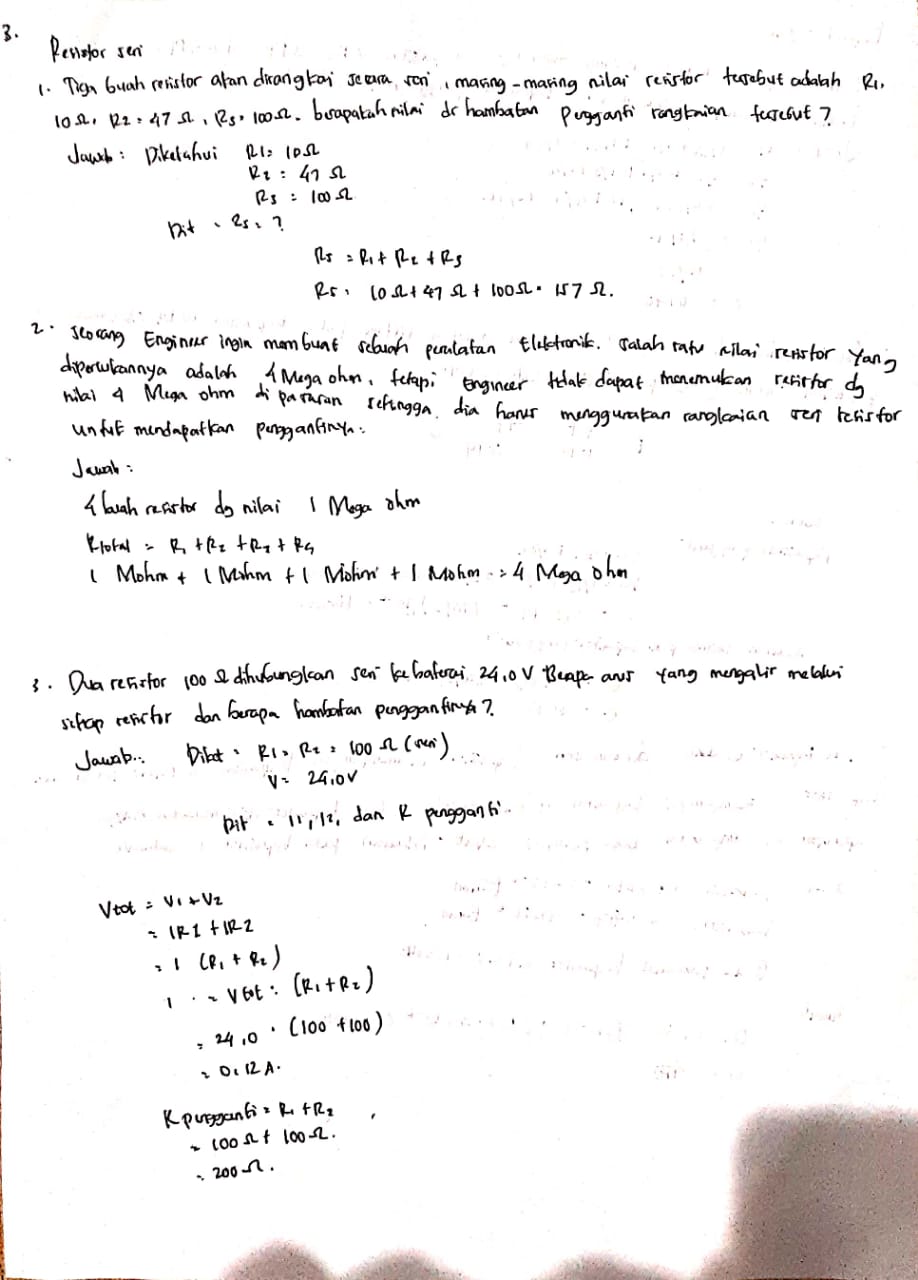 3.
Resistor seri
1. Tiga buah resistor akan dirangkai secara seri, masing-masing nilai resistor tersebut adalah R1,
10 Ω, R2 = 47 Ω, R3 = 100 Ω. berapakah nilai dr hambatan pengganti rangkaian tersebut?
Jawab : Diketahui R1 = 10 Ω
R2 : 47 Ω
R3 : 100 Ω
Dit : Rs = ?
Rs = R1 + R2 + R3
Rs = 10 Ω + 47 Ω + 100 Ω = 157 Ω.
2. Seorang Engineer ingin membuat sebuah peralatan Elektronik. Salah satu nilai resistor yang
diperlukannya adalah 4 Mega ohm, tetapi Engineer tidak dapat menemukan resistor dg
nilai 4 Mega ohm di pasaran sehingga dia harus menggunakan rangkaian seri resistor
untuk mendapatkan penggantinya :
Jawab :
4 buah resistor dg nilai 1 Mega ohm
Rtotal = R1 + R2 + R3 + R4
1 Mohm + 1 Mohm + 1 Mohm + 1 Mohm = 4 Mega ohm
3. Dua resistor 100 Ω dihubungkan seri ke baterai 24,0 V Berapa arus yang mengalir melalui
setiap resistor dan berapa hambatan penggantinya?
Jawab : Diket : R1 = R2 = 100 Ω (seri)
V = 24,0 V
Dit = I1, I2, dan R pengganti.
Vtot = V1 + V2
= IR1 + IR2
= I (R1 + R2)
I = Vtot : (R1 + R2)
= 24,0 : (100 + 100)
= 0,12 A.
R pengganti = R1 + R2
= 100 Ω + 100 Ω.
= 200 Ω.